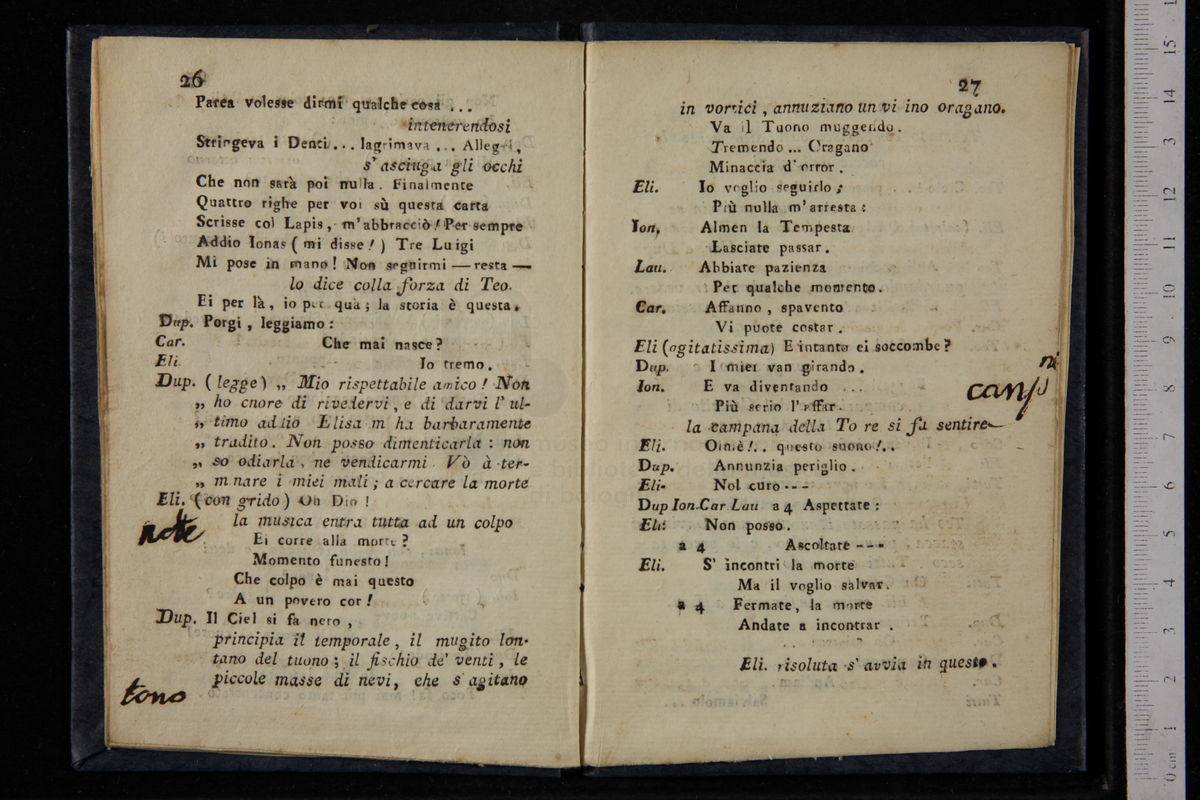 26
Parea volesse dirmi qualche cosa ...
intenerendosi
Stringeva i Denti... lagrimava ... Allegri,
s' asciuga gli occhi
Che non sarà poi nulla. Finalmente
Quattro righe per voi sù questa carta
Scrisse col Lapis, m'abbracciò! Per sempre
Addio Ionas (mi disse!) Tre Luigi
Mi pose in mano! Non seguirmi — resta —
lo dice colla forza di Teo.
Ei per là, io per quà; la storia è questa.
Dup. Porgi, leggiamo:
Car. Che mai nasce?
Eli. Io tremo.
Dup. (legge) „ Mio rispettabile amico! Non
„ ho cnore di rivedervi, e di darvi l' ul-
„ timo addio Elisa m ha barbaramente
„ tradito. Non posso dimenticarla: non
„ so odiarla, ne vendicarmi. Vò à ter-
„ m nare i miei mali; a cercare la morte
Eli. (con grido) Oh Dio!
note
la musica entra tutta ad un colpo
Ei corre alla morte?
Momento funesto!
Che colpo è mai questo
A un povero cor!
Dup. Il Ciel si fa nero,
principia il temporale, il mugito lon-
tano del tuono; il fischio de' venti, le
piccole masse di nevi, che s agitano
tono
27
in vortici, annuziano un vi ino oragano.
Va il Tuono muggendo.
Tremendo ... Oragano
Minaccia d' orror.
Eli. Io voglio seguirlo;
Più nulla m'arresta:
Ion. Almen la Tempesta
Lasciate passar.
Lau. Abbiate pazienza
Per qualche momento.
Car. Affanno, spavento
Vi puote costar.
Eli (agitatissima) E intanto ei soccombe?
Dup. I miei van girando.
Ion. E va diventando ...
Più serio l'affar.
la campana della To re si fa sentire
Eli. Oimè!.. questo suono!..
Dup. Annunzia periglio.
Eli- Nol curo ---
Dup Ion.Car Lau a 4 Aspettate:
Eli: Non posso.
a 4 Ascoltate ---
Eli. S' incontri la morte
Ma il voglio salvar.
a 4 Fermate, la morte
Andate a incontrar.
Eli. risoluta s' avvia in questo.
0 cm 1 2 3 4 5 6 7 8 9 10 11 12 13 14 15